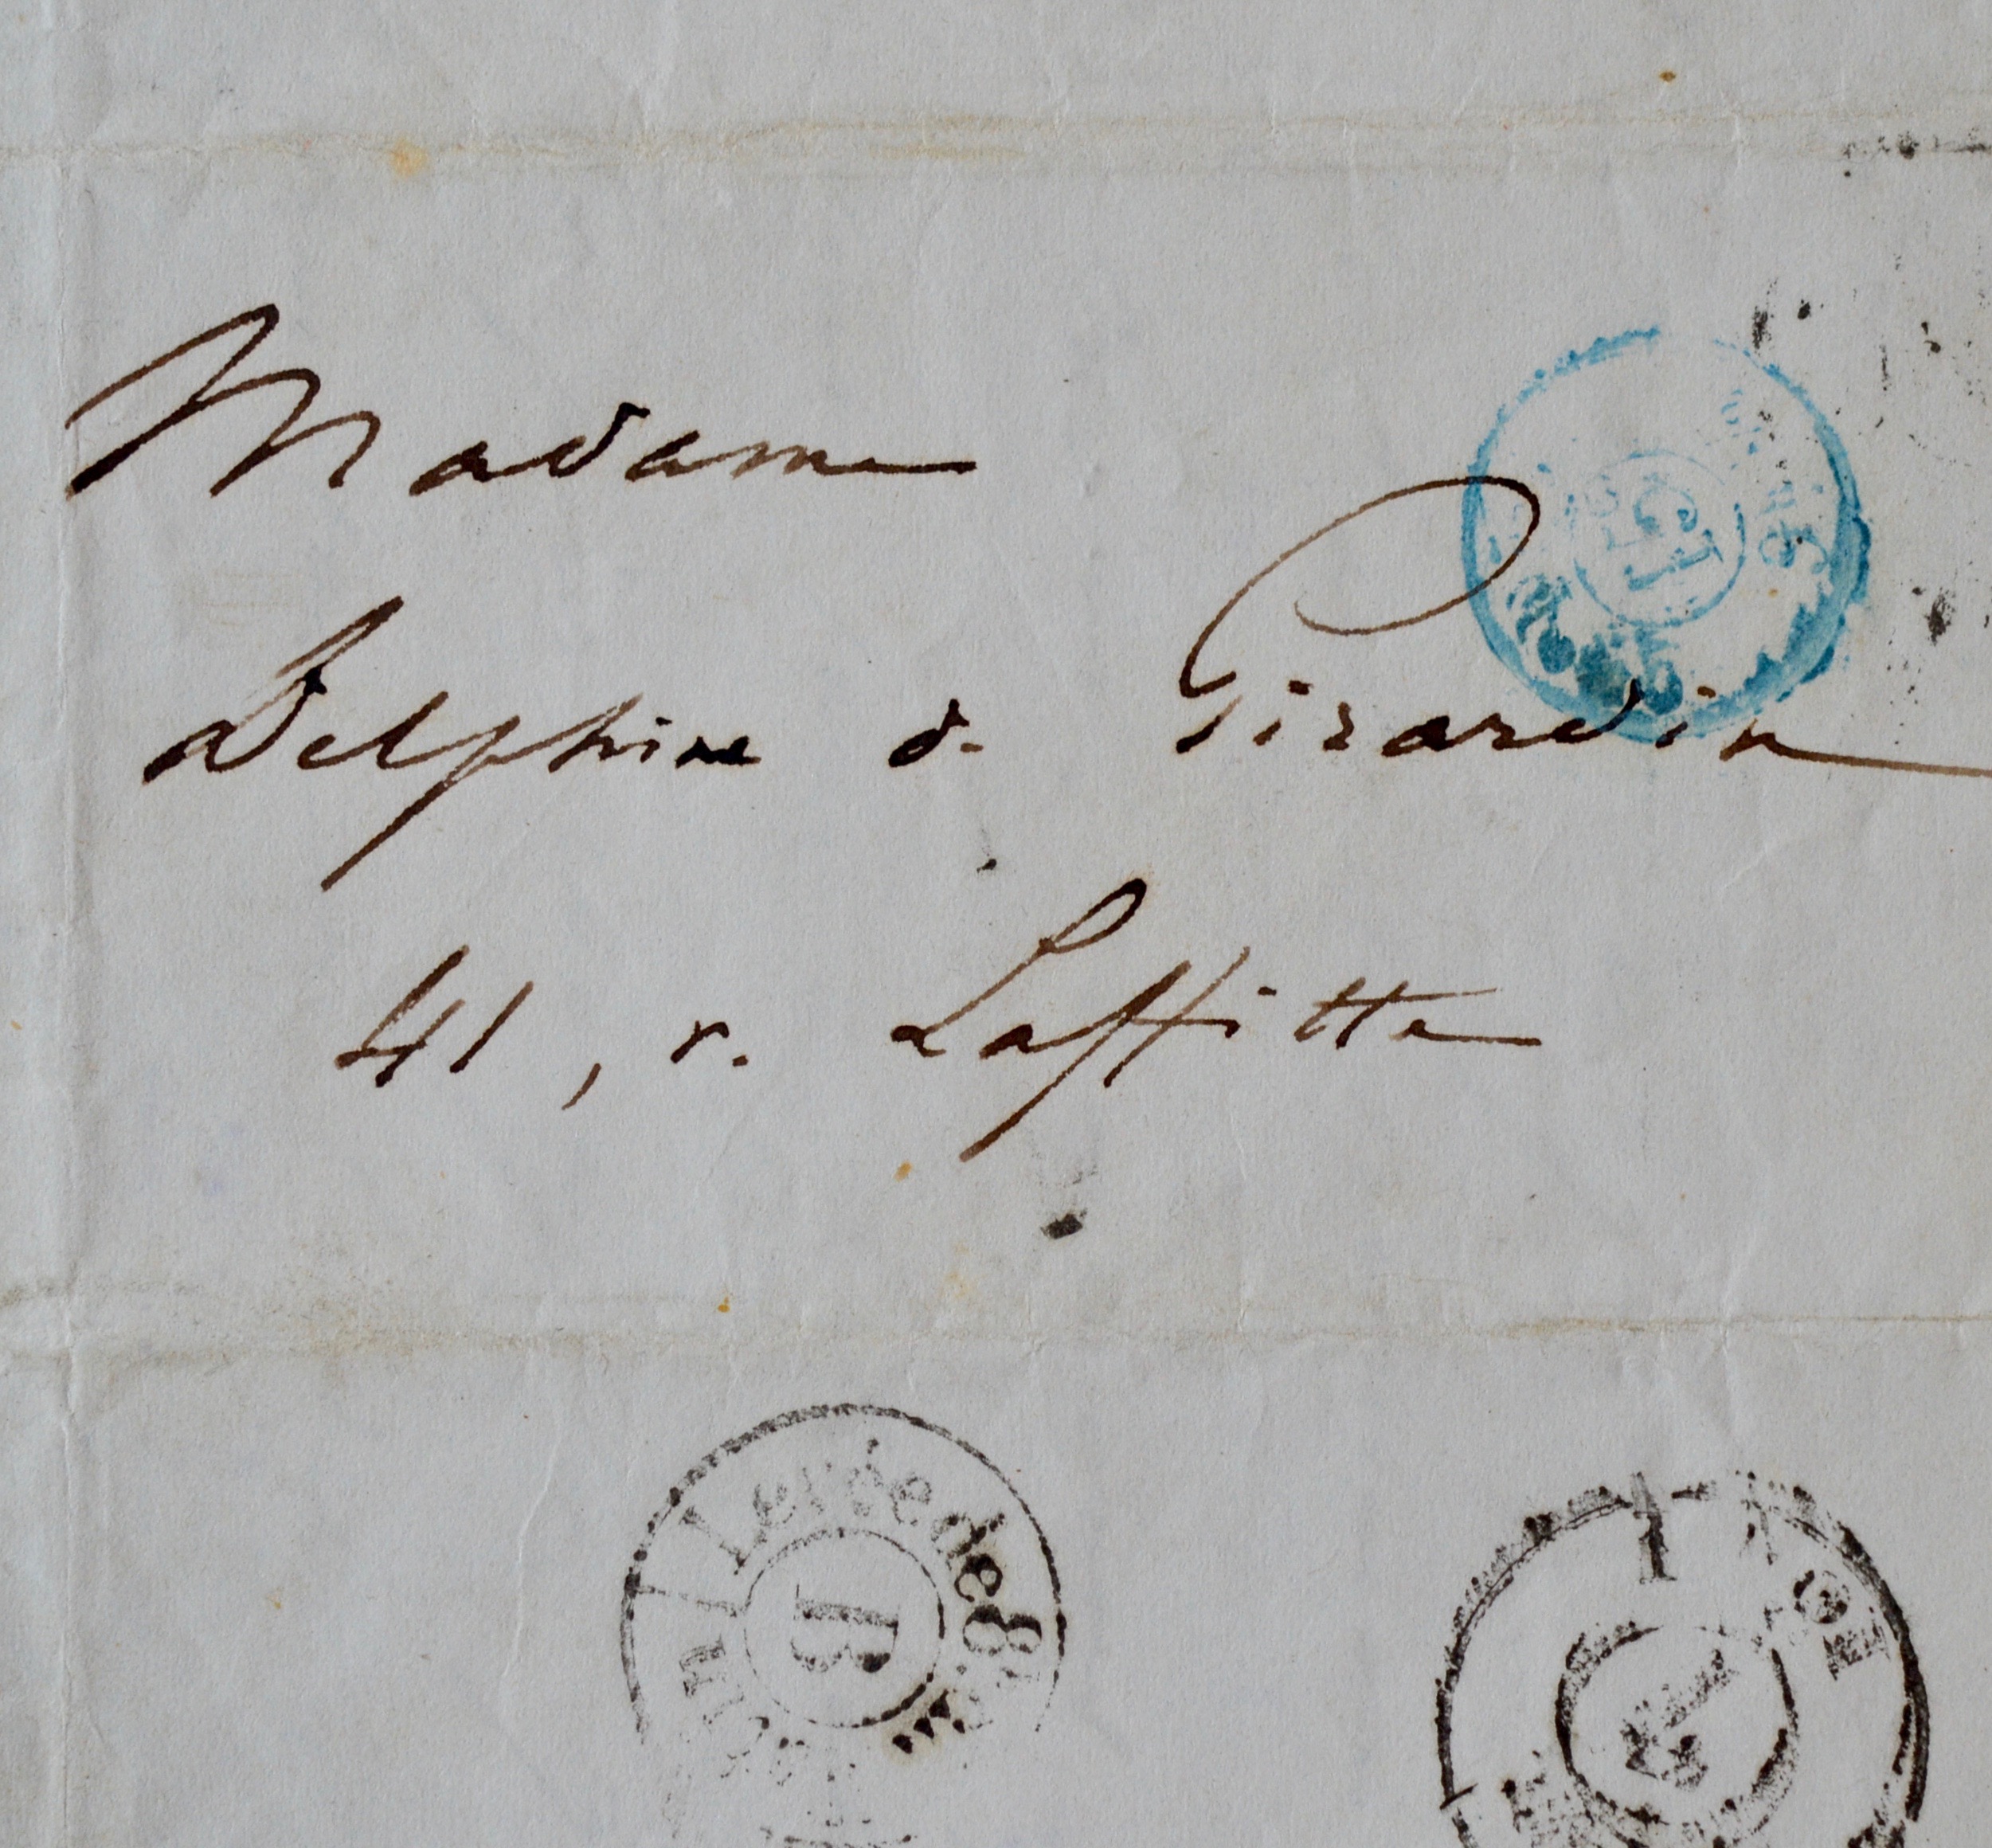 Madame
Delphine d. Girardin
41, r. Laffitte
Levée de 8